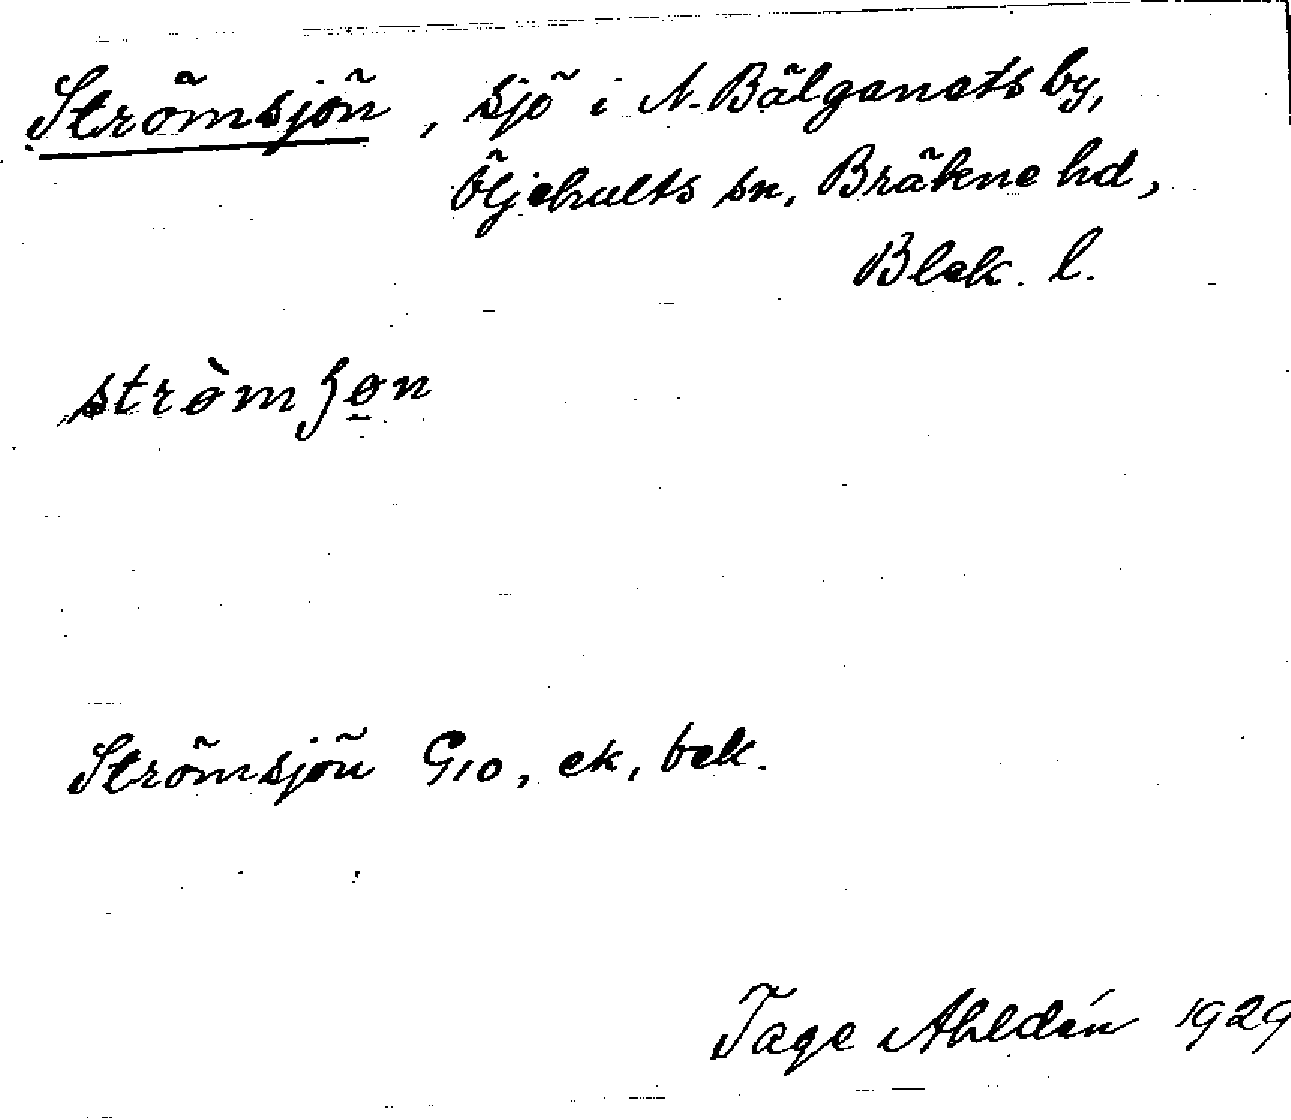 Strömsjön, sjö i N. Bälganets by,
Öljehults sn, Bräkne hd,
Blek. l.
stròmʒo̲n
Strömsjön G10, ek, bek.
Tage Ahldén 1929